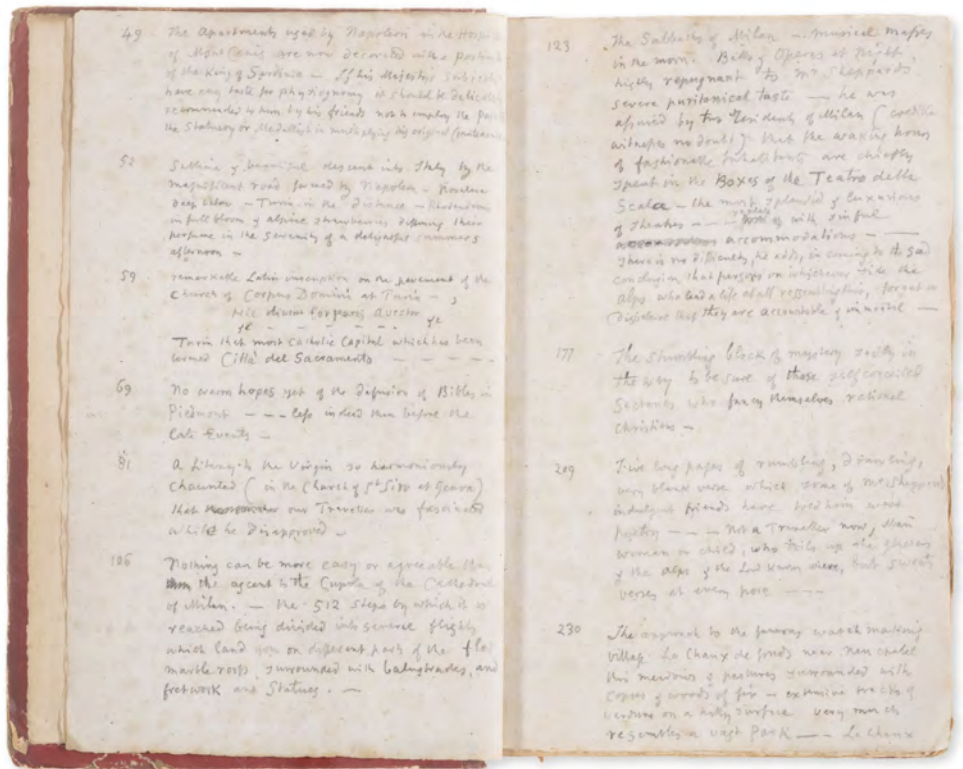 49 The Apartments used by Napoleon in the Hospice
of Mont Cenis are now decorated with a portrait
of the King of Sardinia — If his Majestys Subjects
have any taste for physiognomy it should be delicately
recommended to him by his friends not to employ the
the Statuary or Medallist in multiplying his original
52 Sublime & beautiful descent into Italy by the
magnificent road formed by Napoleon —
deep below — Turin in the distance — Rhododendrons
in full bloom & alpine strawberries diffusing their
perfume in the Serenity of a delightful summers
afternoon —
59 remarkable Latin inscription on the pavement of the
Church of Corpus Domini at Turin — ,
Hic divini Corporis avector
&c — — — — — &c
Turin that most Catholic Capital which has been
termed Città del Sacramento — — — —
69 No warm hopes yet of the diffusion of Bibles in
Piedmont — — — less indeed than before the
late Events —
81 A Litany to the Virgin so harmoniously
Chaunted ( in the Church of St Siro at Genoa )
that our Traveller was fascinated
whilst he disapproved —
106 Nothing can be more easy or agreeable than
the ascent to the Cupola of the Cathedral
of Milan. — the 512 Steps by which it is
reached being divided into several flights
which land you on different parts of the flat
marble roofs, surrounded with balustrades, and
fretwork and Statues. —
123 The Sabbaths of Milan — musical masses
in the morn. Balls & Operas at Night,
highly repugnant to Mr Sheppards
severe puritanical taste — he was
assured by two Residents of Milan ( credible
witnesses no doubt ) that the waking hours
of fashionable Inhabitants are chiefly
spent in the Boxes of the Teatro della
Scala — the most splendid & luxurious
of Theatres — — with sinful
accommodations — —
There is no difficulty, he adds, in coming to the sad
conclusion that persons on whichever side the
Alps who lead a life at all resembling this, forget or
disbelieve that they are accountable & immortal —
177 The stumbling block of mystery sadly in
the way to be sure of those self conceited
Sectaries who fancy themselves rational
Christians —
209 Five long pages of rumbling, drawling,
very blank verse which some of Mr Sheppards
indulgent friends have told him were
poetry — — — Not a Traveller now, Man
woman or child, who toils up the glaciers
of the Alps & the Lord knows where, but sweats
verses at every pore — — —
230 The approach to the famous watch making
village La Chaux de fonds near Neuchatel
this meadows & pastures surrounded with
Copses & woods of fir — extensive tracts of
verdure on a hilly surface very much
resembles a vast Park — — La Chaux